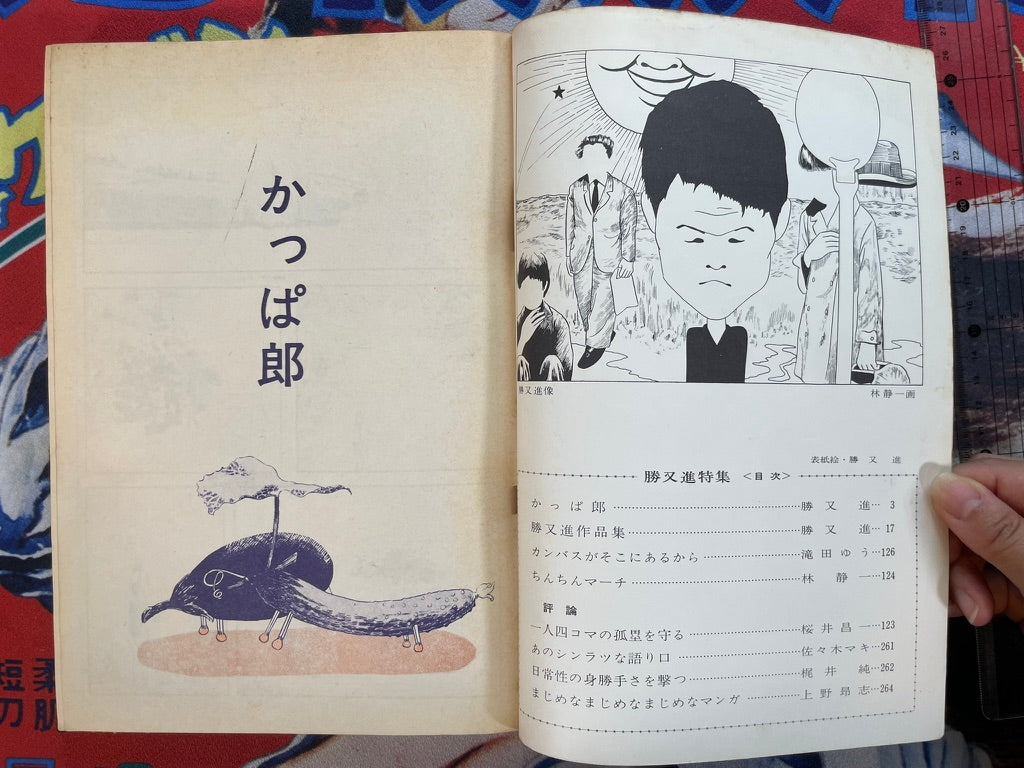 かっぱ郎
勝又進像
林静一画
表紙絵・勝又進
勝又進特集 <目次>
かっぱ郎……勝又進…3
勝又進作品集……勝又進…17
カンバスがそこにあるから……滝田ゆう…126
ちんちんマーチ……林静一…124
評論
一人四コマの孤塁を守る……桜井昌一…123
あのシンラツな語り口……佐々木マキ…261
日常性の身勝手さを撃つ……梶井純…262
まじめなまじめなまじめなマンガ……上野昂志…264